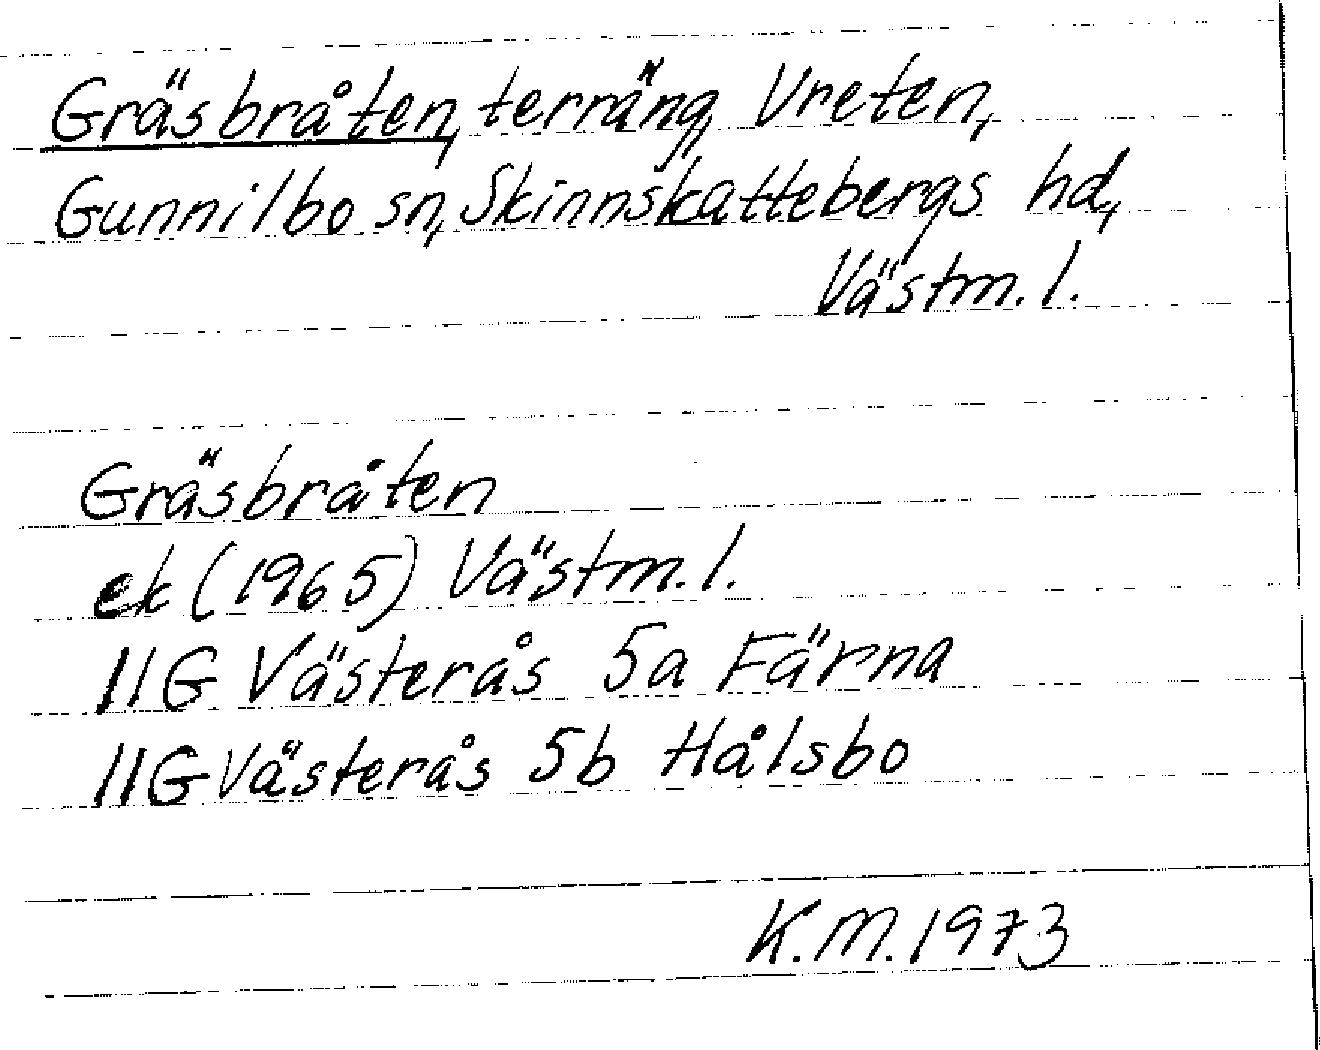 Gräsbråten, terräng, Vreten,
Gunnilbo sn, Skinnskattebergs hd,
Västm. l.
Gräsbråten
ek (1965) Västm. l.
11G Västerås 5a Färna
11G Västerås 5b Hålsbo
K.M. 1973